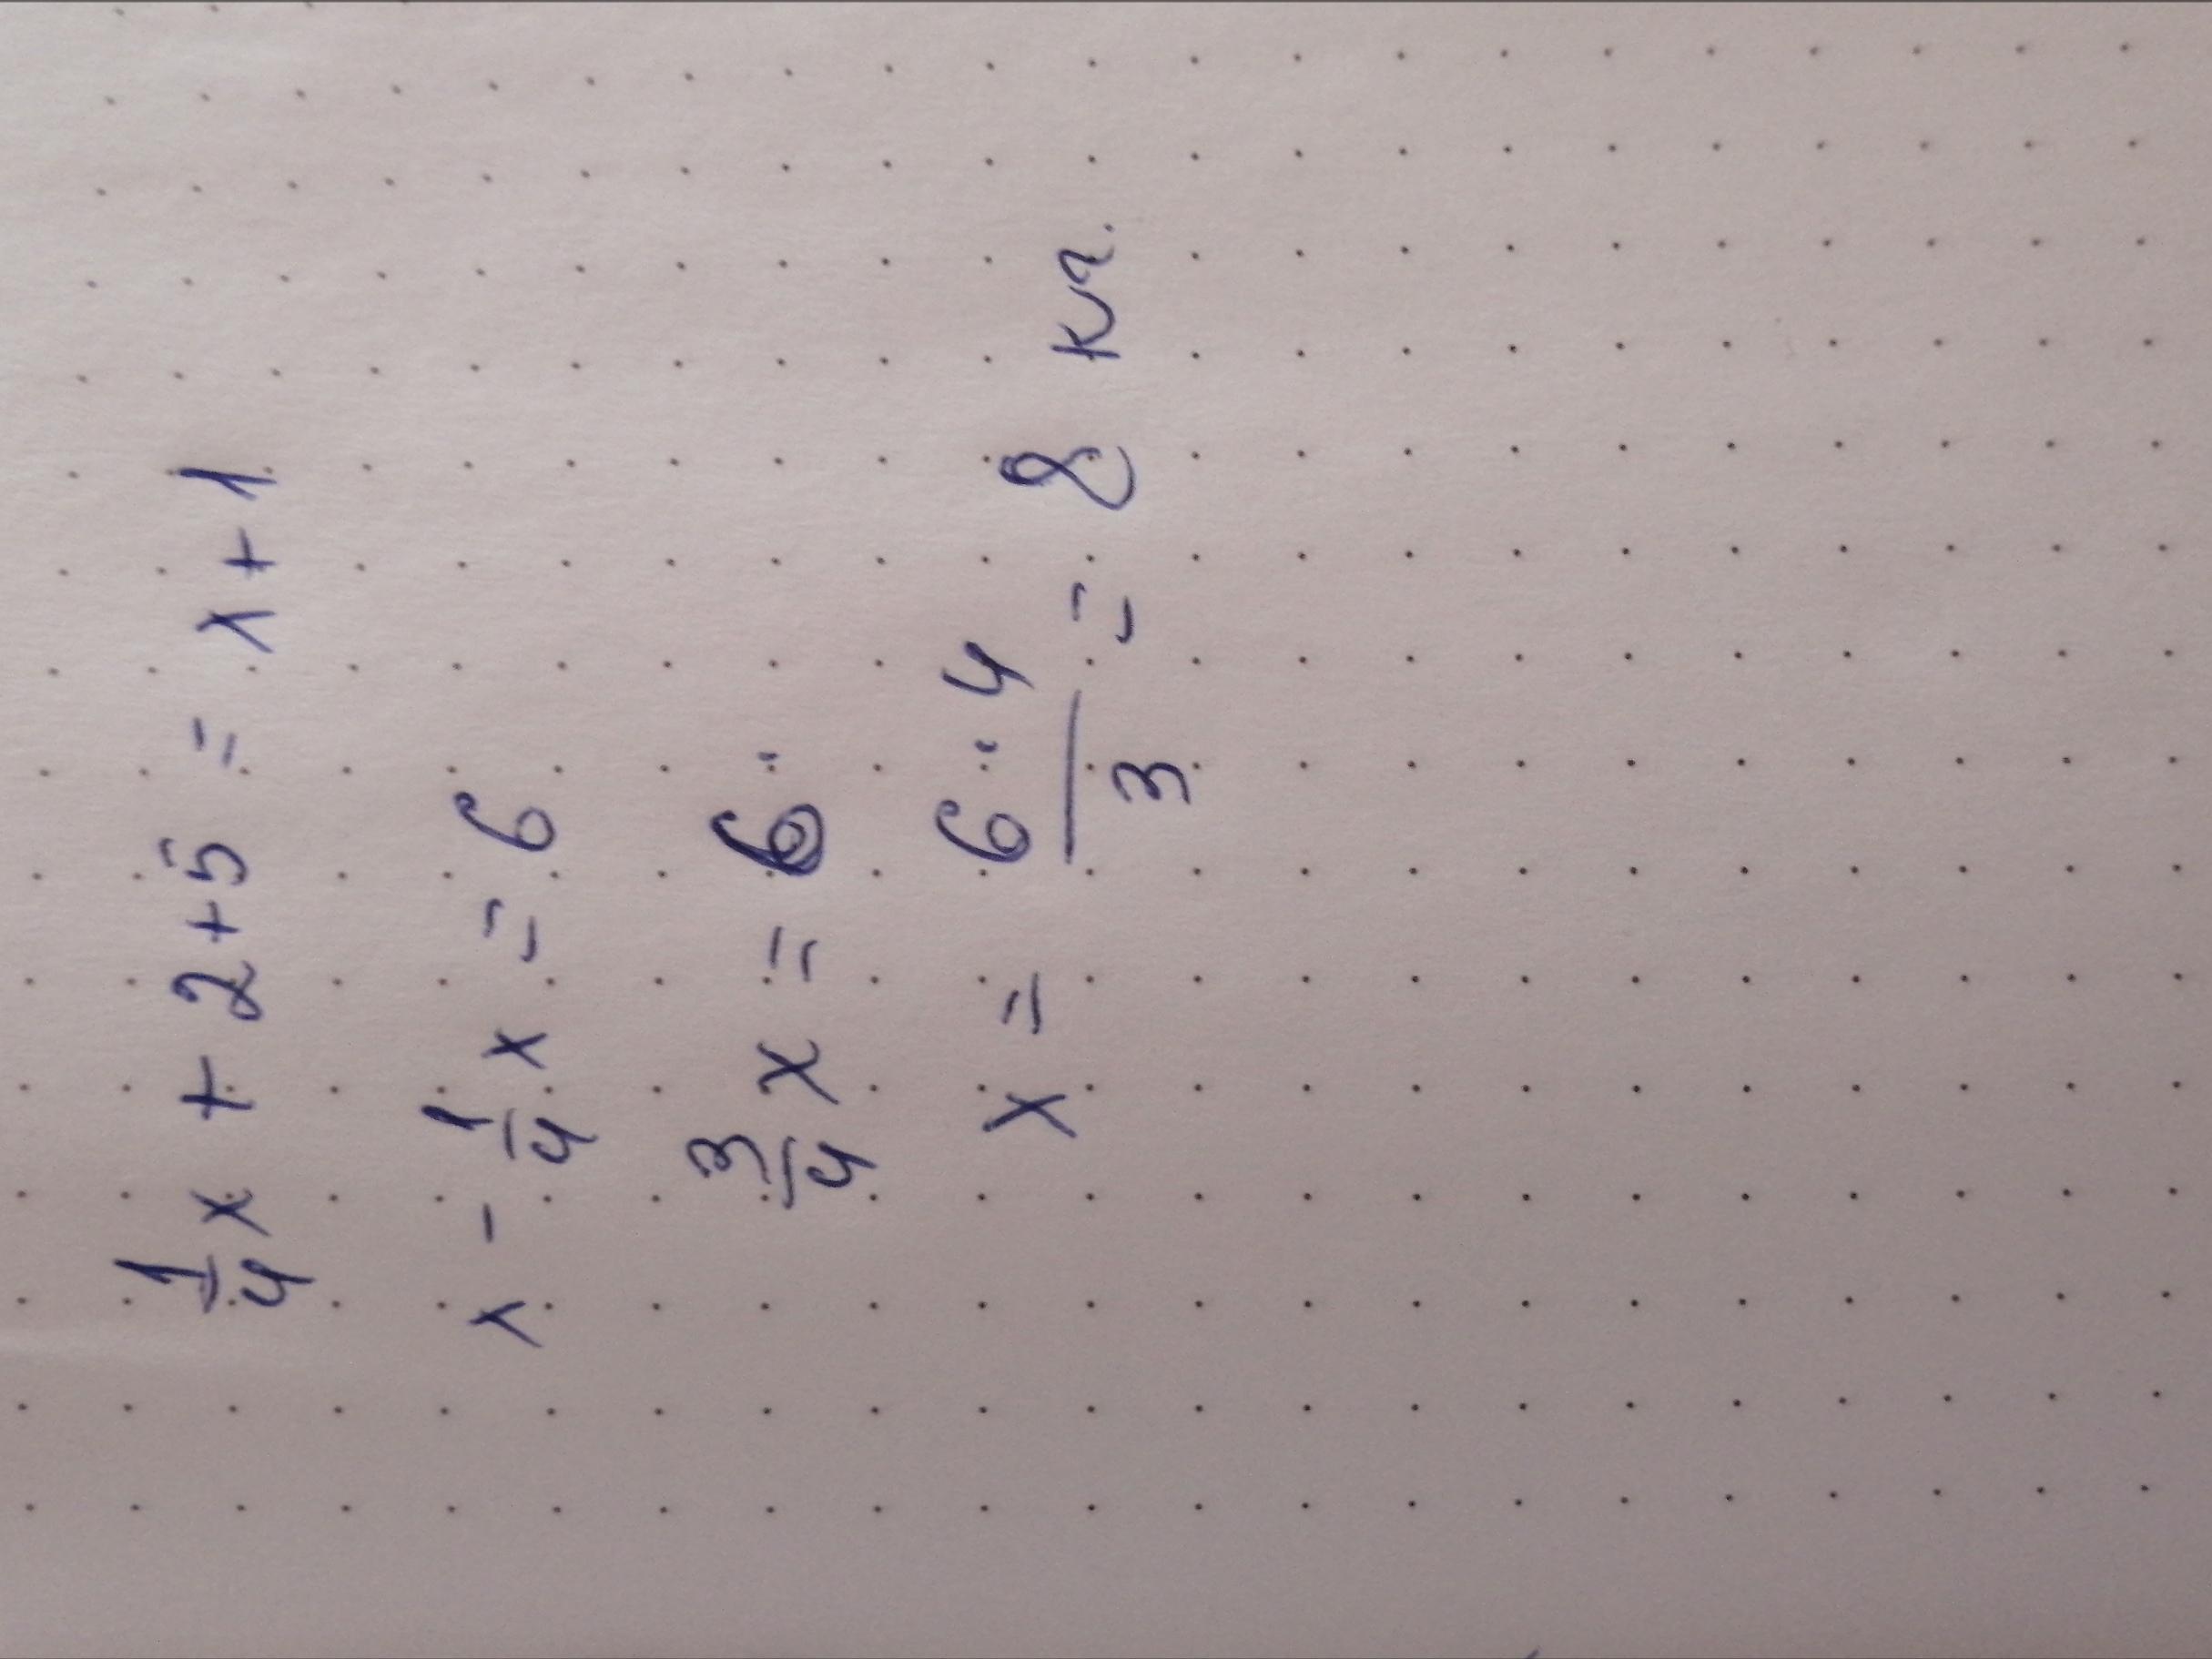 1/4 x + 2+5 = x + 1
x - 1/4 x = 6
3/4 x = 6 ·
x = 6·4/3 = 8 кг.